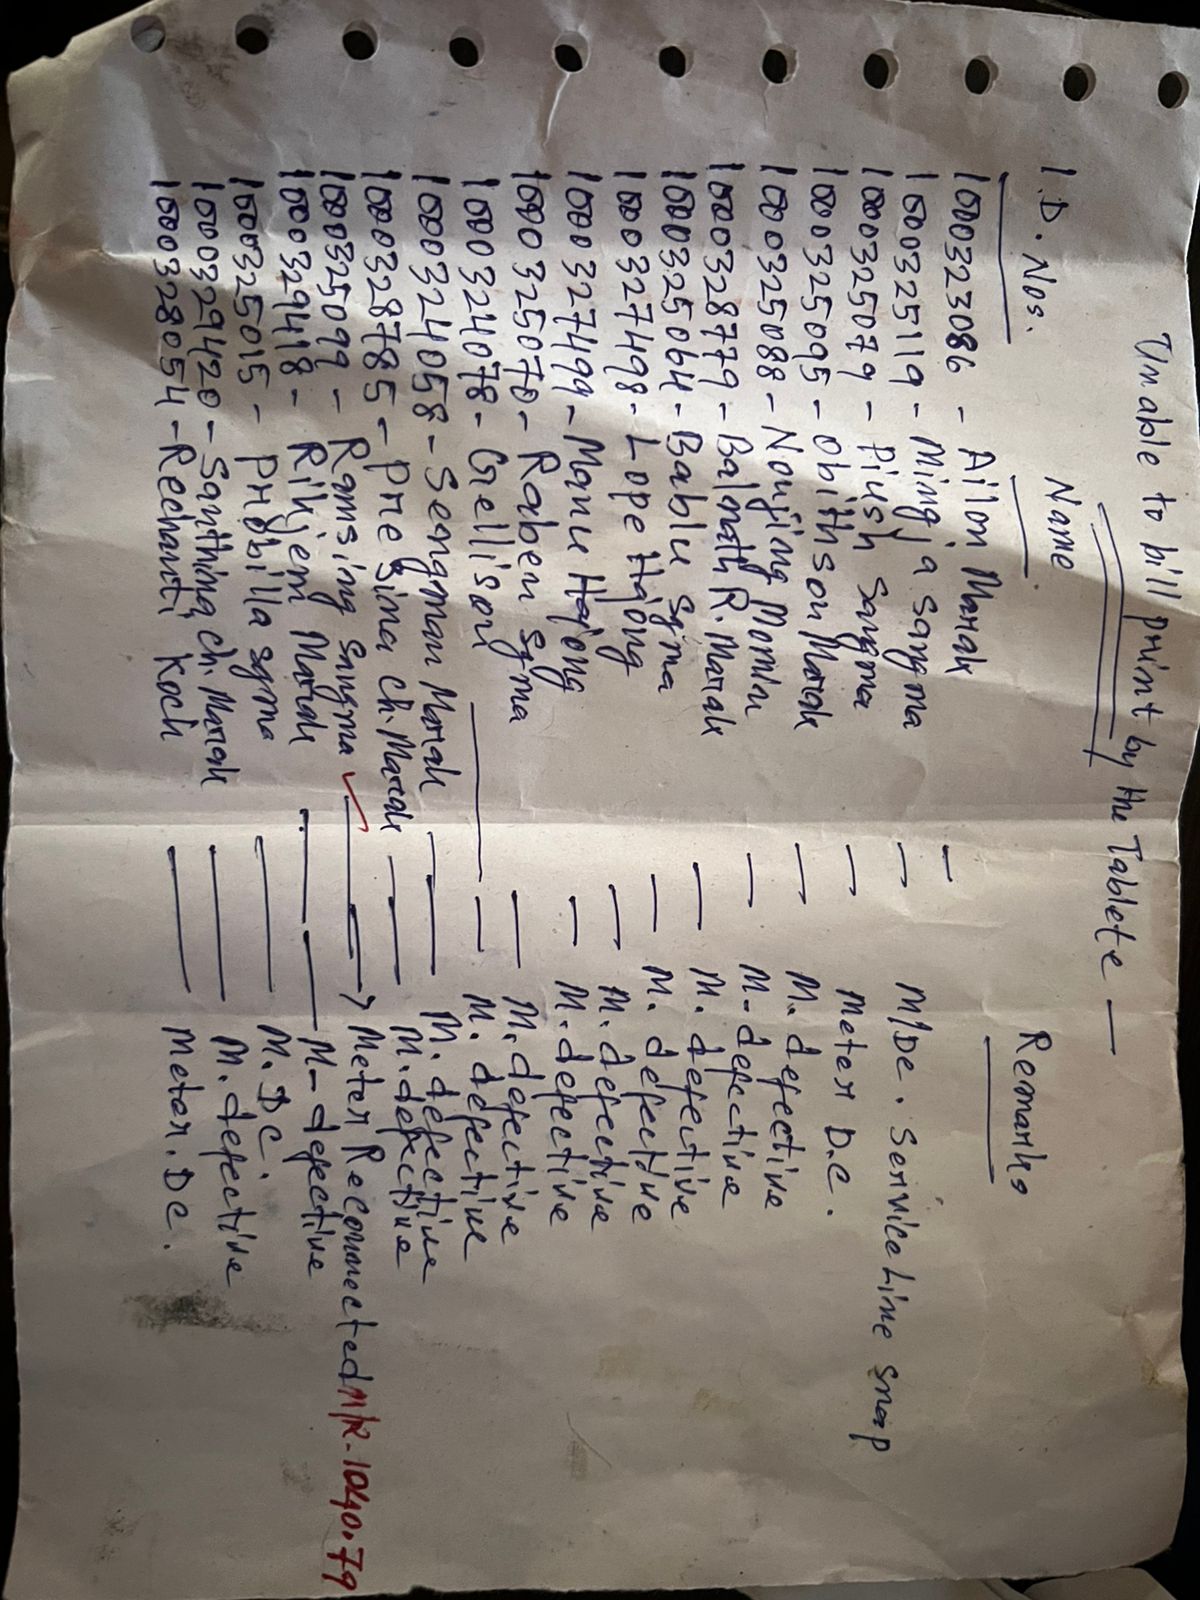 Unable to bill print by the Tablete —
I.D. Nos. Name Remarks
1000323086 - Ailon Marak —
1000325119 - Mingja Sangma — M/De. Service Line snap
1000325079 - Piush Sangma — Meter D.C.
1000325095 - Obithson Marak — M. defective
1000325088 - Noujing Momin — M- defective
1000328779 - Balnath R. Marak — M. defective
1000325064 - Bablu Sgma — M. defective
1000327498 - Lope Hajong — M. defective
1000327499 - Manu Hajong — M. defective
1000325070 - Raben Sgma — M. defective
1000324078 - Gellison — M. defective
1000324058 - Sengman Marak — M. defective
1000328785 - Pre Sina Ch. Marak — M. defective
1000325099 - Ramsing Sangma ✓ → Meter Reconnected M/R - 1040.79
1000329418 - Rikjem Marak — M- defective
1000325015 - Phibilla Sgma — M. DC.
1000329420 - Sanithing Ch. Marak — M. defective
1000328054 - Rechanti Koch — Meter. DC.